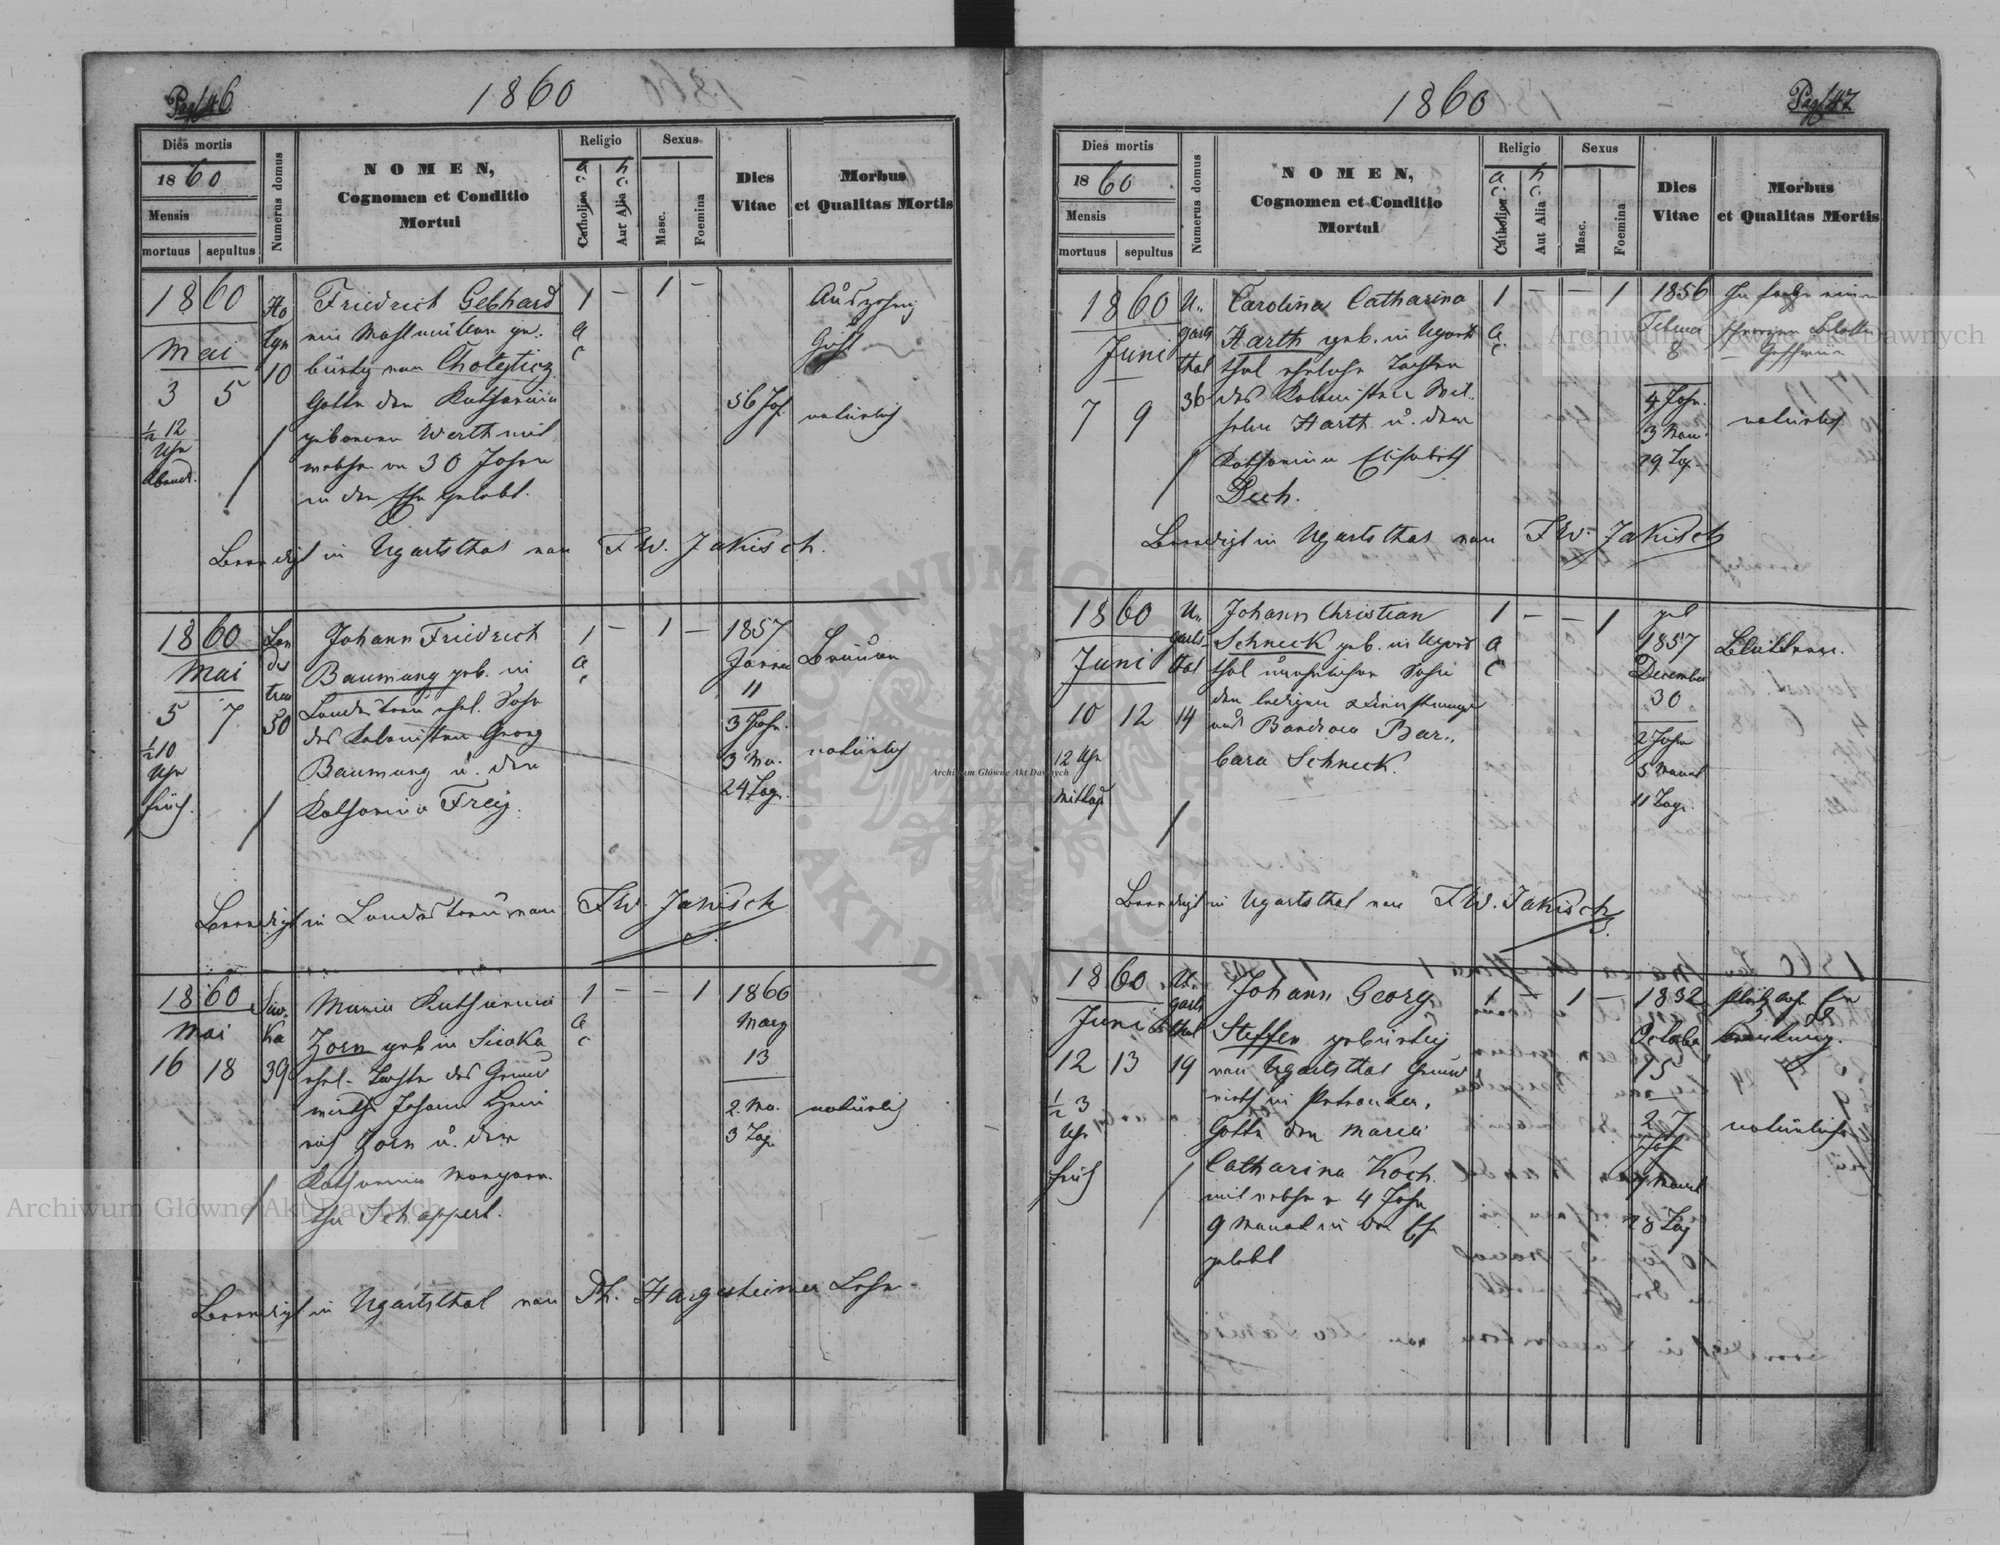 Pag. 46
1860
Dies mortis
1860
Mensis
mortuus sepultus
Numerus domus
NOMEN,
Cognomen et Conditio
Mortui
Religio
Catholica a. c.
Aut Alia h. c.
Sexus
Masc.
Foemina
Dies
Vitae
Morbus
et Qualitas Mortis
1860
Mai
3 5
1/2 12
Uhr
Abends.
10
Friedrich Gebhard
ein
bürtig von
Gatte der Katharina
geborenen Werth mit
welcher er 30 Jahre
in der Ehe gelebt.
1 – 1 –
a
c
56 Jah.
natürlich
Beerdigt in Ugartsthal von Fr. W. Jakisch.
1860
Mai
5 7
1/2 10
Uhr
früh.
Lan
des
treu
50
Johann Friedrich
Baumung geb. in
Landestreu ehel. Sohn
des Kolonisten Georg
Baumung u. der
Katharina Frey.
1 – 1 –
a
c
1857
Jänner
11
3 Jahr.
3 Mo.
24 Tage.
Bräune
natürlich
Beerdigt in Landestreu von Fr. W. Jakisch
1860
Mai
16 18
Siw-
ka
39
Maria Katharina
Zorn geb. in Siwka
ehel. Tochter des Grund
wirths Johann Hein
rich Zorn u. der
Katharina Margare
the Schappert.
1 – – 1
a
c
1860
März
13
2. Mo.
3 Tage
natürlich
Beerdigt in Ugartsthal von Ph. Hargesheimer Lehr.
Pag. 47
1860
Dies mortis
1860
Mensis
mortuus sepultus
Numerus domus
NOMEN,
Cognomen et Conditio
Mortui
Religio
Catholica a. c.
Aut Alia h. c.
Sexus
Masc.
Foemina
Dies
Vitae
Morbus
et Qualitas Mortis
1860
Juni
7 9
U-
garts
thal
36
Carolina Catharina
Harth geb. in Ugarts
thal eheliche Tochter
des Kolonisten Wil-
helm Harth u. der
Katharina Elisabeth
Dech.
1 – – 1
a.
c.
1856
Februar
8
4 Jahr.
3 Mon.
29 Tag.
In Folge einer
natürlich
Beerdigt in Ugartsthal von Fr. W. Jakisch
1860
Juni
10 12
12 Uhr
Mittag
U-
garts-
thal
14
Johann Christian
Schneck geb. in Ugarts
thal unehelicher Sohn
der ledigen Dienstmagd
aus Bandrow Bar-
bara Schneck.
1 – – 1
a
c
geb
1857
December
30
2 Jahr
5 Monat
11 Tage.
Blattern.
Beerdigt in Ugartsthal von Fr. W. Jakisch
1860.
Juni
12 13
1/2 3
Uhr
früh
U-
garts
thal
19
Johann Georg
Steffen gebürtig
von Ugartsthal Grund
wirth in
Gatte der Maria
Catharina Koch.
mit welcher er 4 Jahr
9 Monat in der Ehe
gelebt
1 – 1 –
1832
October
15
27
Jahr
7 Monat
28 Tag
natürlich
Archiwum Główne Akt Dawnych
Archiwum Główne Akt Dawnych
Archiwum Główne Akt Dawnych
ARCHIWUM GŁÓWNE AKT DAWNYCH